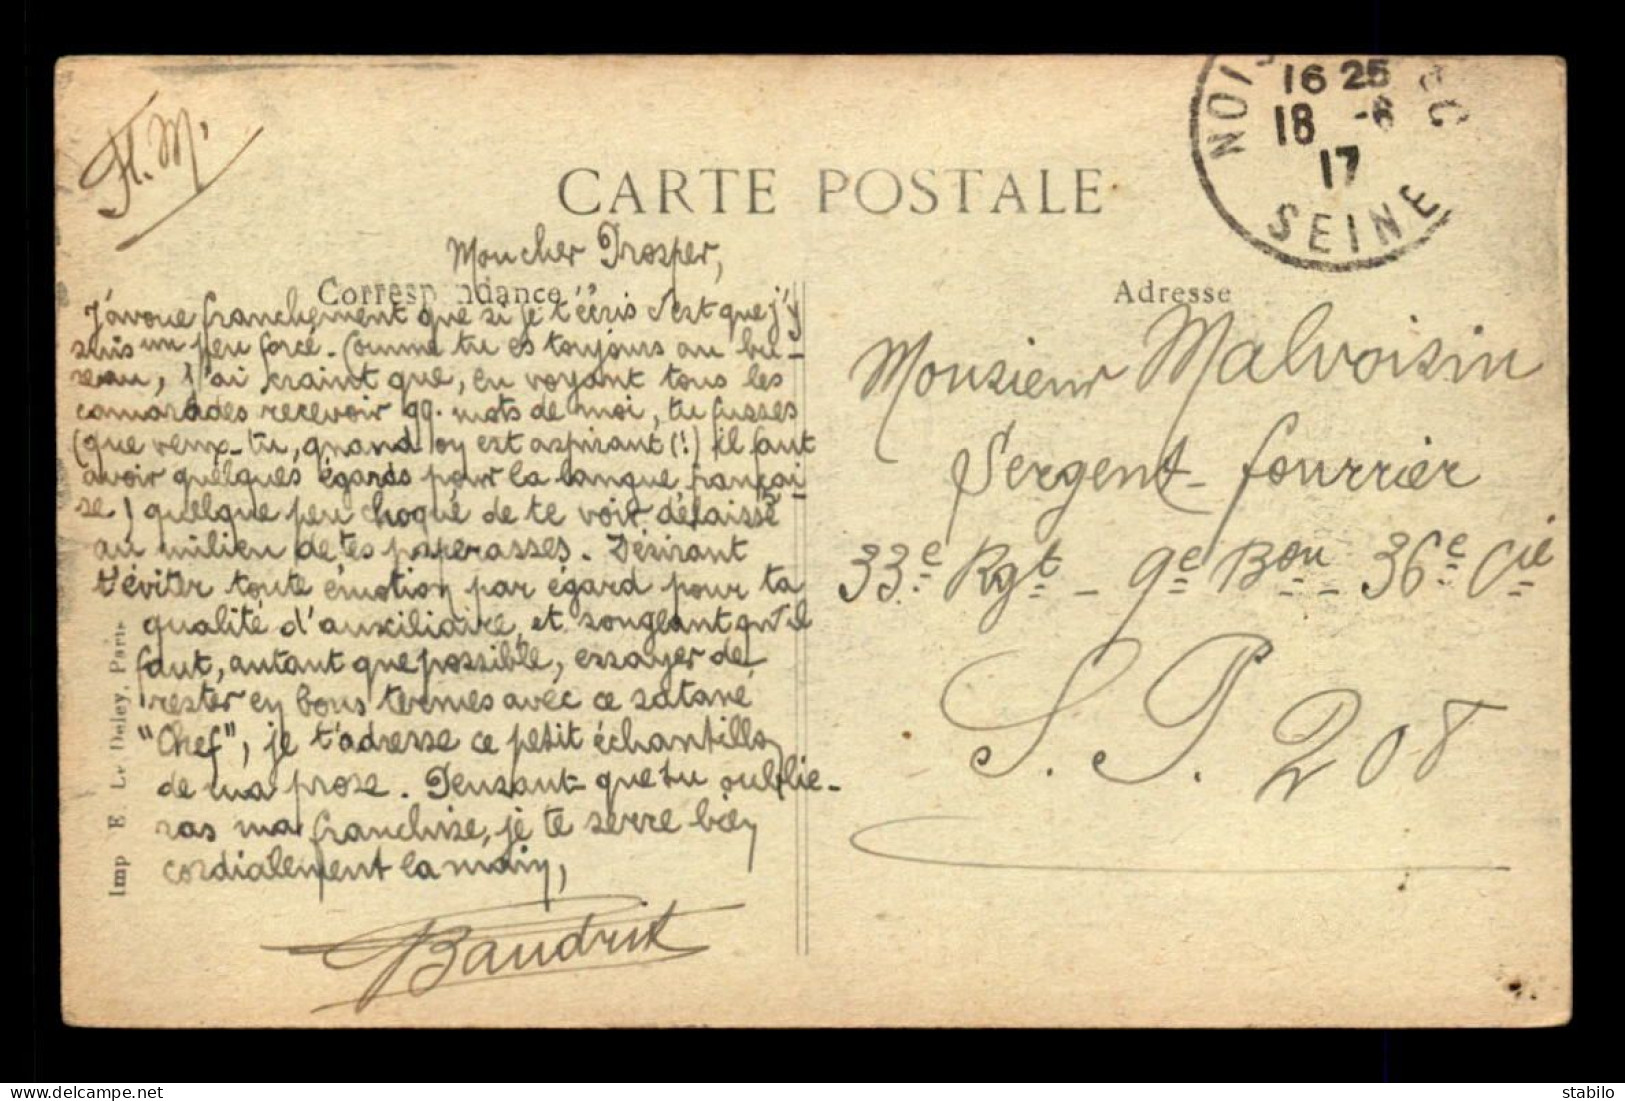 F.M.
CARTE POSTALE
NOIS EC
16 25
18 -6
17
SEINE
Correspondance
Adresse
Mon cher Prosper,
J'avoue franchement que si je t'écris c'est que j'y
suis un peu forcé. Comme tu es toujours au bu-
reau, j'ai craint que, en voyant tous les
camarades recevoir qq. mots de moi, tu fusses
(que veux-tu, quand on est aspirant (!) il faut
avoir quelques égards pour la langue françai-
se) quelque peu choqué de te voir délaissé
au milieu de tes paperasses. Désirant
t'éviter toute émotion par égard pour ta
qualité d'auxiliaire, et songeant qu'il
faut, autant que possible, essayer de
rester en bons termes avec ce satané
"Chef", je t'adresse ce petit échantillon
de ma prose. Pensant que tu oublie-
ras ma franchise, je te serre bien
cordialement la main,
Baudrit
Monsieur Malvoisin
Sergent-fourrier
33e Rgt - 9e Bon - 36e Cie
S. P. 208
Imp E. Le Deley, Paris
delcampe.net
stabilo